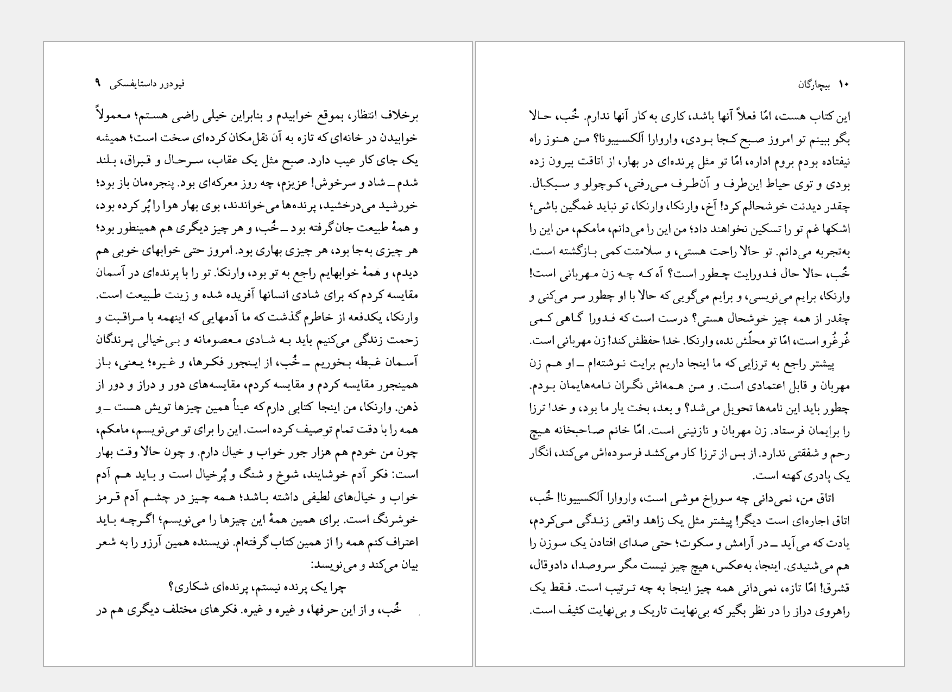 فیودور داستایفسکی ۹
برخلاف انتظار، بموقع خوابیدم و بنابراین خیلی راضی هستم؛ معمولاً
خوابیدن در خانه‌ای که تازه به آن نقل‌مکان کرده‌ای سخت است؛ همیشه
یک جای کار عیب دارد. صبح مثل یک عقاب، سرحال و قبراق، بلند
شدم ــ شاد و سرخوش! عزیزم، چه روز معرکه‌ای بود. پنجره‌مان باز بود؛
خورشید می‌درخشید، پرنده‌ها می‌خواندند، بوی بهار هوا را پُر کرده بود،
و همهٔ طبیعت جان گرفته بود ــ خُب، و هر چیز دیگری هم همینطور بود؛
هر چیزی به‌جا بود، هر چیزی بهاری بود. امروز حتی خوابهای خوبی هم
دیدم، و همهٔ خوابهایم راجع به تو بود، وارنکا. تو را با پرنده‌ای در آسمان
مقایسه کردم که برای شادی انسانها آفریده شده و زینت طبیعت است.
وارنکا، یکدفعه از خاطرم گذشت که ما آدمهایی که اینهمه با مراقبت و
زحمت زندگی می‌کنیم باید به شادی معصومانه و بی‌خیالی پرندگان
آسمان غبطه بخوریم ــ خُب، از اینجور فکرها، و غیره؛ یعنی، باز
همینجور مقایسه کردم و مقایسه کردم، مقایسه‌های دور و دراز و دور از
ذهن. وارنکا، من اینجا کتابی دارم که عیناً همین چیزها تویش هست ــ و
همه را با دقت تمام توصیف کرده است. این را برای تو می‌نویسم، مامکم،
چون من خودم هم هزار جور خواب و خیال دارم. و چون حالا وقت بهار
است: فکر آدم خوشایند، شوخ و شنگ و پُرخیال است و باید هم آدم
خواب و خیال‌های لطیفی داشته باشد؛ همه چیز در چشم آدم قرمز
خوشرنگ است. برای همین همهٔ این چیزها را می‌نویسم؛ اگرچه باید
اعتراف کنم همه را از همین کتاب گرفته‌ام. نویسنده همین آرزو را به شعر
بیان می‌کند و می‌نویسد:
چرا یک پرنده نیستم، پرنده‌ای شکاری؟
خُب، و از این حرفها، و غیره و غیره. فکرهای مختلف دیگری هم در
۱۰ بیچارگان
این کتاب هست، امّا فعلاً آنها باشد، کاری به کار آنها ندارم. خُب، حالا
بگو ببینم تو امروز صبح کجا بودی، واروارا آلکسییونا؟ من هنوز راه
نیفتاده بودم بروم اداره، امّا تو مثل پرنده‌ای در بهار، از اتاقت بیرون زده
بودی و توی حیاط این‌طرف و آن‌طرف می‌رفتی، کوچولو و سبکبال.
چقدر دیدنت خوشحالم کرد! آخ، وارنکا، وارنکا، تو نباید غمگین باشی؛
اشکها غم تو را تسکین نخواهند داد؛ من این را می‌دانم، مامکم، من این را
به‌تجربه می‌دانم. تو حالا راحت هستی، و سلامتت کمی بازگشته است.
خُب، حالا حال فدورایت چطور است؟ آه که چه زن مهربانی است!
وارنکا، برایم می‌نویسی، و برایم می‌گویی که حالا با او چطور سر می‌کنی و
چقدر از همه چیز خوشحال هستی؟ درست است که فدورا گاهی کمی
غُرغُرو است، امّا تو محلّش نده، وارنکا. خدا حفظش کند! زن مهربانی است.
پیشتر راجع به ترزایی که ما اینجا داریم برایت نوشته‌ام ــ او هم زن
مهربان و قابل اعتمادی است. و من همه‌اش نگران نامه‌هایمان بودم.
چطور باید این نامه‌ها تحویل می‌شد؟ و بعد، بخت یار ما بود، و خدا ترزا
را برایمان فرستاد. زن مهربان و نازنینی است. امّا خانم صاحبخانه هیچ
رحم و شفقتی ندارد. از بس از ترزا کار می‌کشد فرسوده‌اش می‌کند، انگار
یک پادری کهنه است.
اتاق من، نمی‌دانی چه سوراخ موشی است، واروارا آلکسییونا! خُب،
اتاق اجاره‌ای است دیگر! پیشتر مثل یک زاهد واقعی زندگی می‌کردم،
یادت که می‌آید ــ در آرامش و سکوت؛ حتی صدای افتادن یک سوزن را
هم می‌شنیدی. اینجا، به‌عکس، هیچ چیز نیست مگر سروصدا، دادوقال،
قشرق! امّا تازه، نمی‌دانی همه چیز اینجا به چه ترتیب است. فقط یک
راهروی دراز را در نظر بگیر که بی‌نهایت تاریک و بی‌نهایت کثیف است.